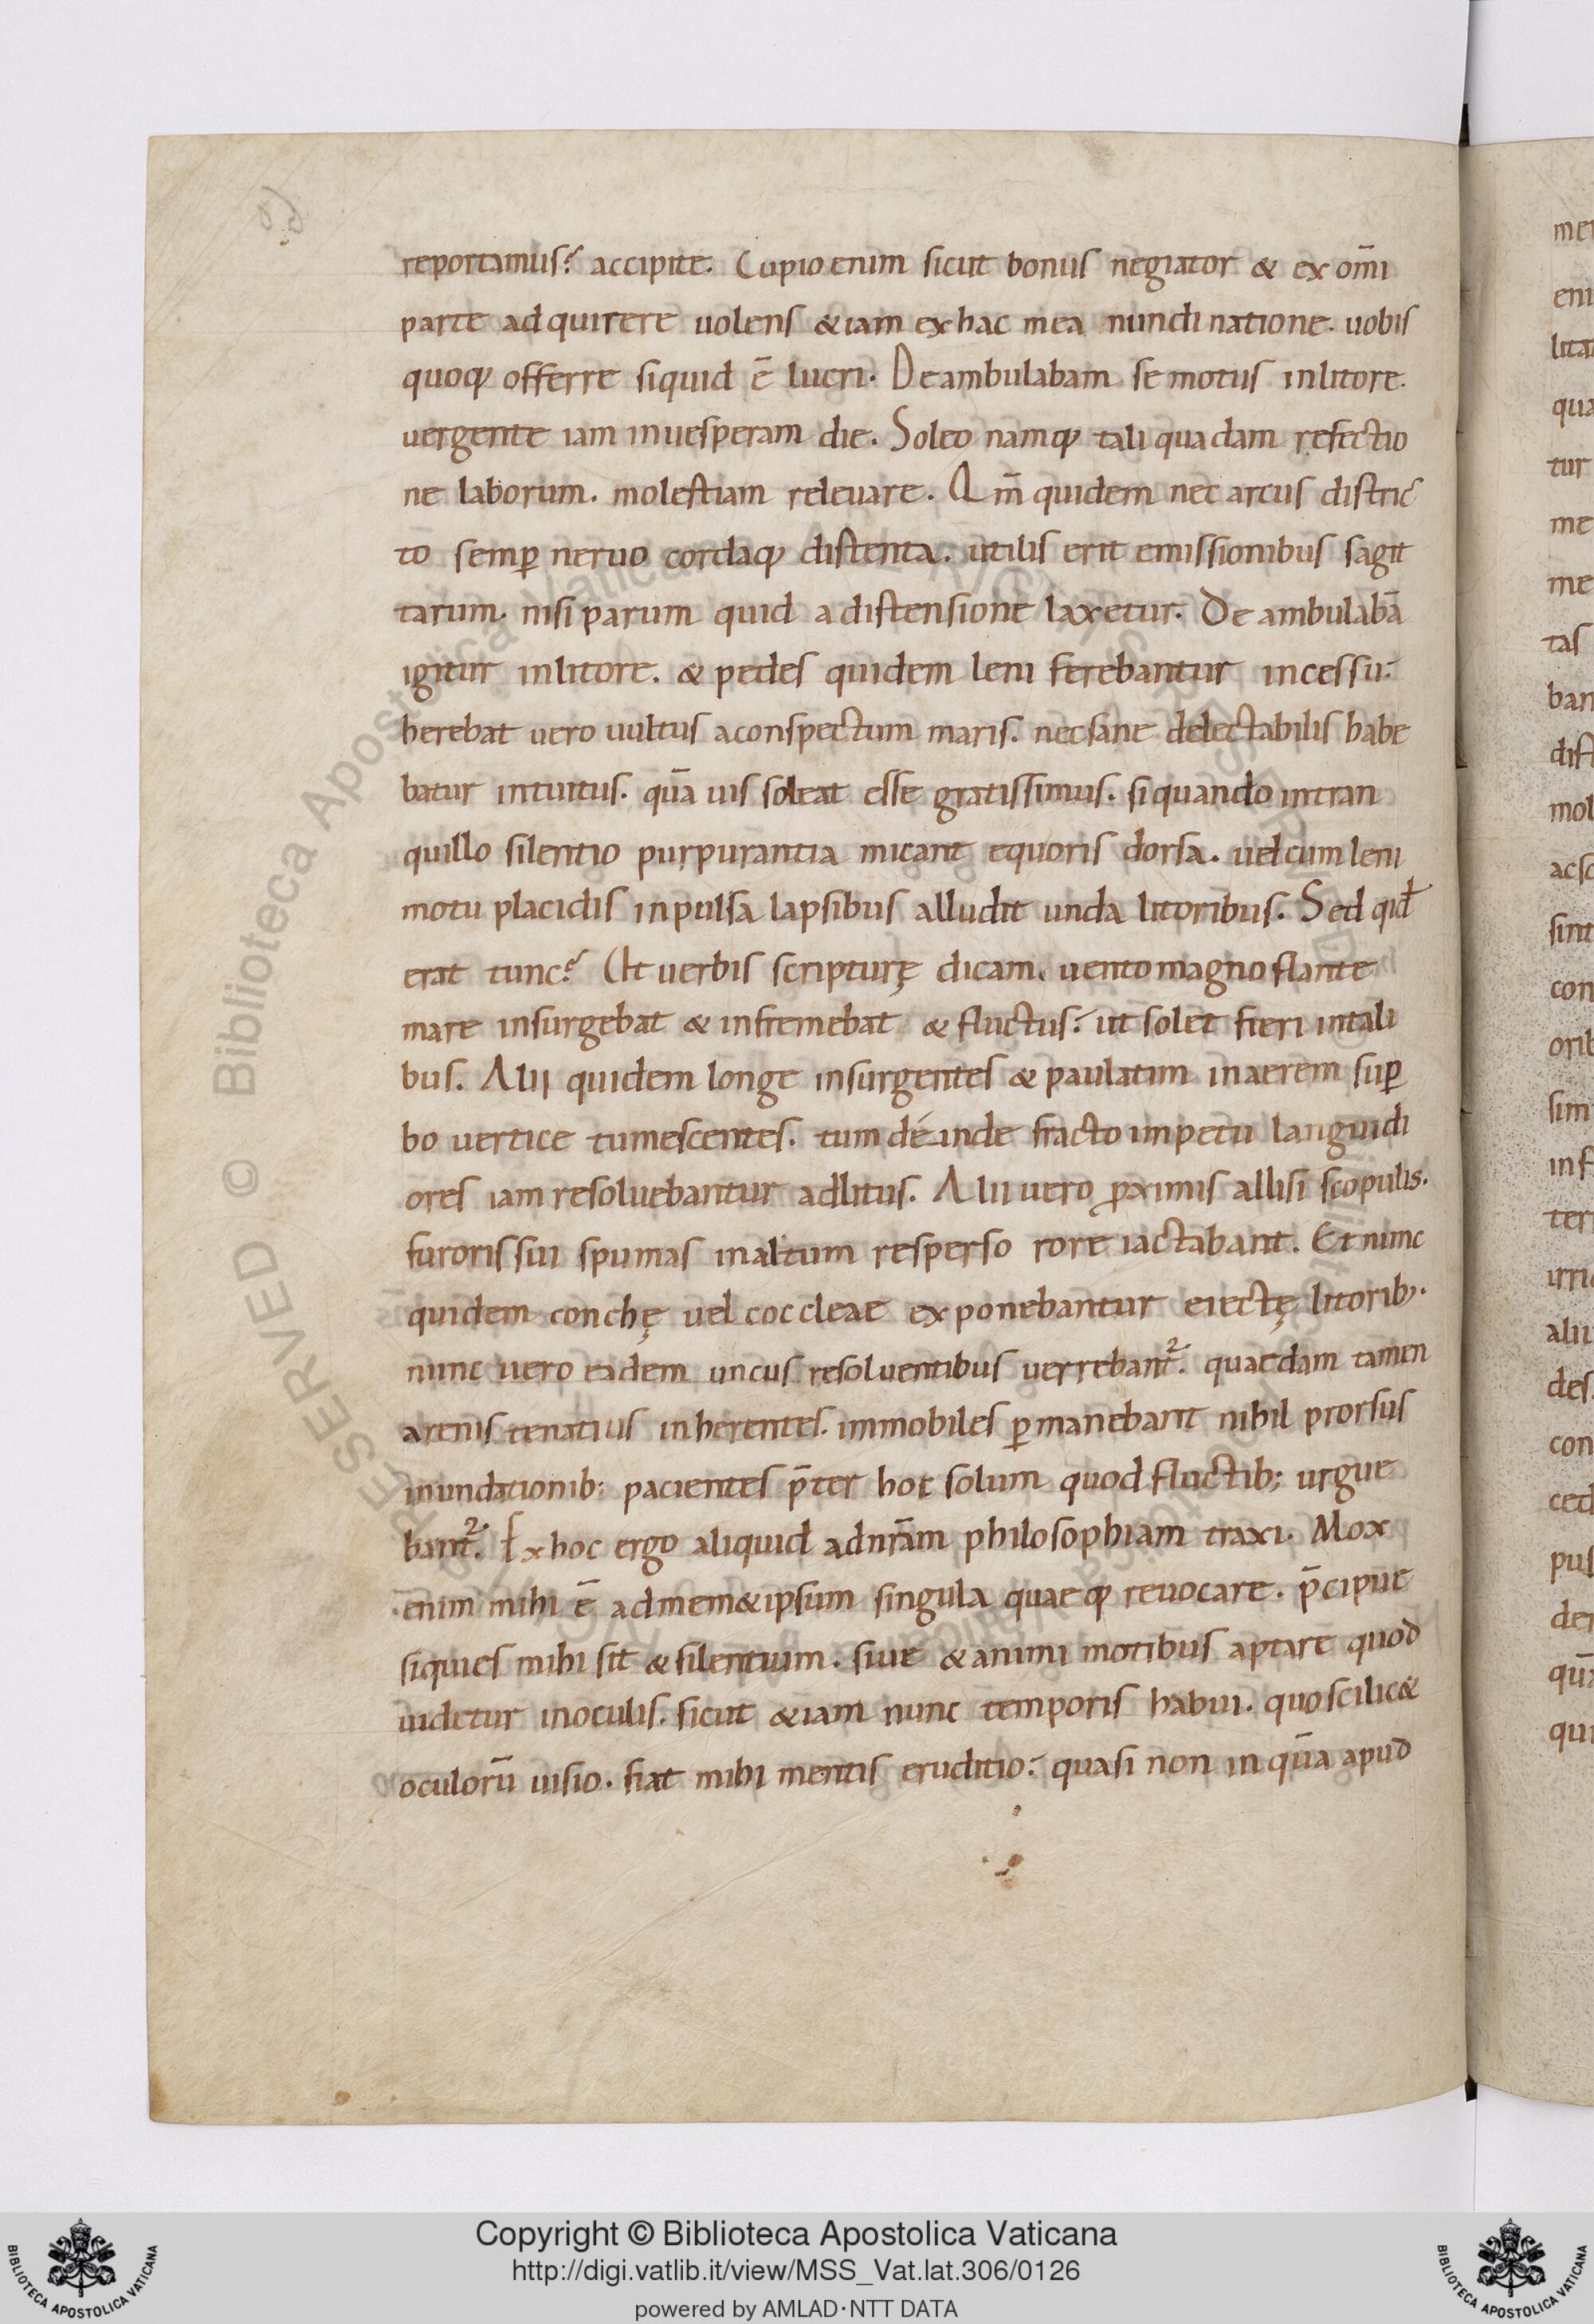 reportamus? accipite. Cupio enim sicut bonus negiator & ex om̄i
parte adquirere uolens &iam ex hac mea nundinatione. uobis
quoq; offerre siquid ē lucri. Deambulabam semotus inlitore.
uergente iam inuesperam die. Soleo namq; tali quadam refectio
ne laborum. molestiam releuare. Qm̄ quidem nec arcus distric
to semꝑ neruo cordaq; distenta. utilis erit emissionibus sagit
tarum. nisi parum quid adistensione laxetur. Deambulabā
igitur inlitore. & pedes quidem leni ferebantur incessu.
herebat uero uultus aconspectum maris. necsane delectabilis habe
batur intuitus. quā uis soleat esse gratissimus. siquando intran
quillo silentio purpurantia micant equoris dorsa. uel cum leni
motu placidis inpulsa lapsibus alludit unda litoribus. Sed qid
erat tunc? Ut uerbis scripturę dicam. uento magno flante
mare insurgebat & infremebat & fluctus. ut solet fieri intali
bus. Alii quidem longe insurgentes & paulatim inaerem suꝑ
bo uertice tumescentes. tum déinde fracto impetu languidi
ores iam resoluebantur adlitus. Alii uero ꝓximis allisi scopulis.
furoris sui spumas inaltum resperso rore iactabant. Et nunc
quidem conchę uel coccleae exponebantur eiectę litorib;.
nunc uero eadem uncus resoluentibus uerrebant². quaedam tamen
arenis tenatius inherentes. immobiles ꝑmanebant nihil prorsus
inundationib: pacientes p̄ter hoc solum quod fluctib; urgue
bant². Ex hoc ergo aliquid adnr̄am philosophiam traxi. Mox
enim mihi ē admem&ipsum singula quaeq; reuocare. p̄cipue
siquies mihi sit & silentium. siue & animi motibus aptare quod
uidetur inoculis. sicut &iam nunc temporis habui. quo scilic&
oculorū uisio. fiat mihi mentis eruditio. quasi non in quā apud
Copyright © Biblioteca Apostolica Vaticana
http://digi.vatlib.it/view/MSS_Vat.lat.306/0126
powered by AMLAD·NTT DATA